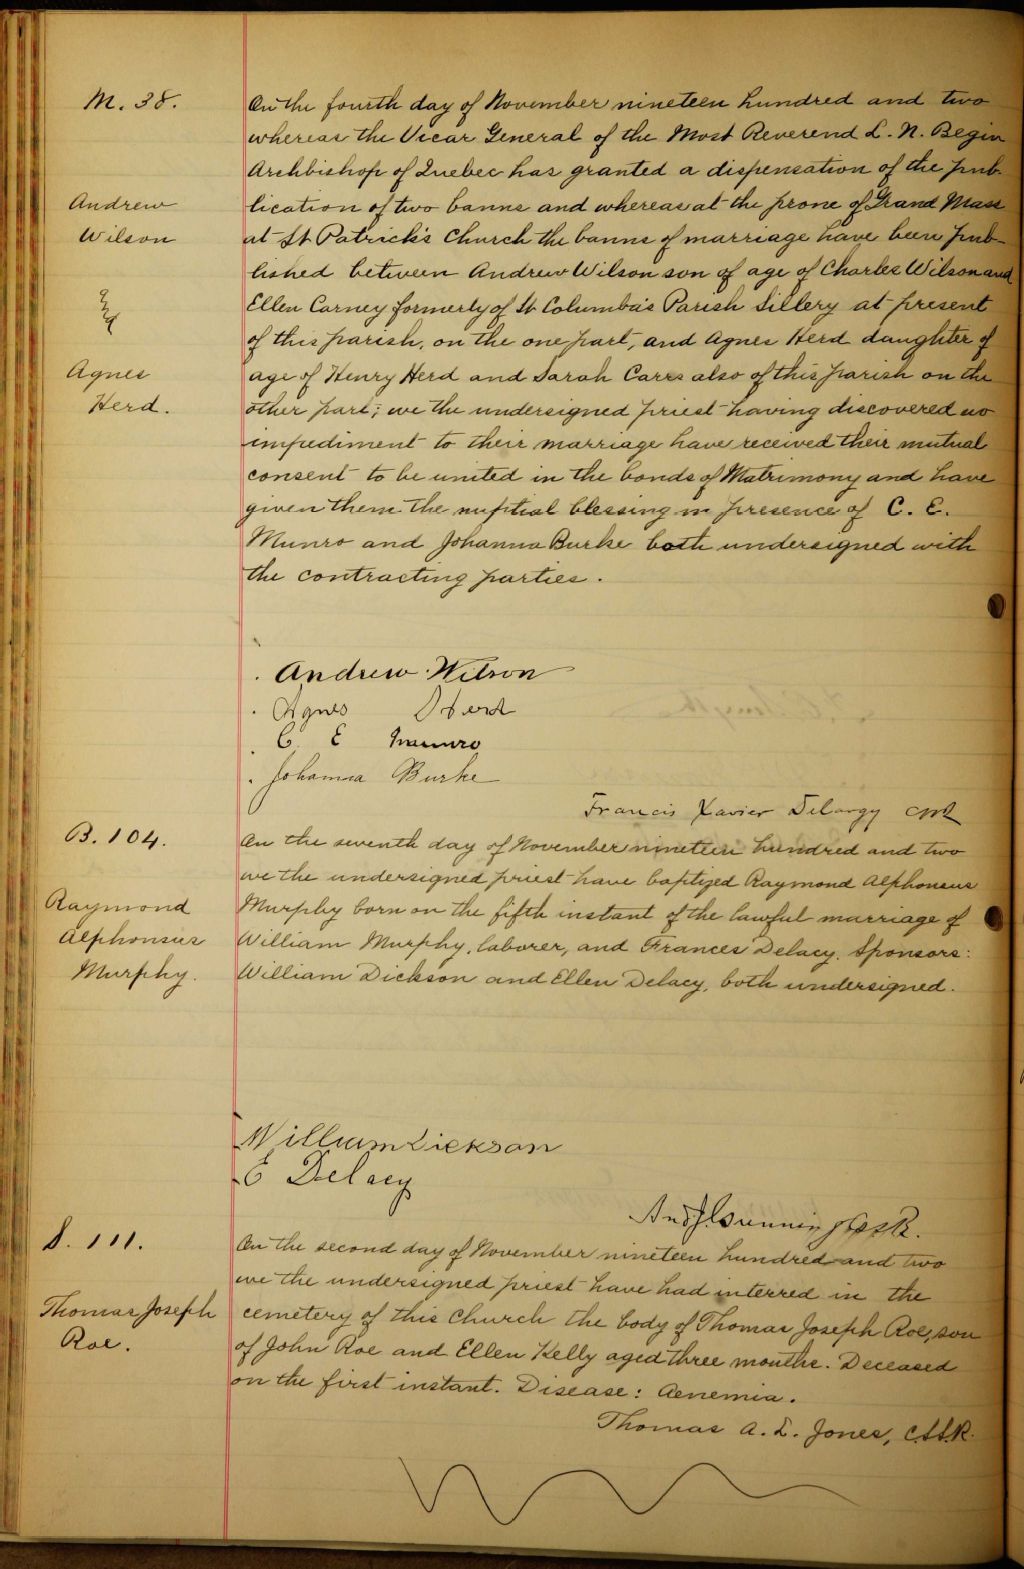 M. 38.
Andrew
Wilson
&
Agnes
Herd.
On the fourth day of November nineteen hundred and two
whereas the Vicar General of the Most Reverend L. N. Begin
Archbishop of Quebec has granted a dispensation of the pub-
lication of two banns and whereas at the prone of Grand Mass
at St Patrick's Church the banns of marriage have been pub-
lished between Andrew Wilson son of age of Charles Wilson and
Ellen Carney formerly of St Columba's Parish Sillery at present
of this parish, on the one part, and Agnes Herd daughter of
age of Henry Herd and Sarah Carrs also of this parish on the
other part; we the undersigned priest having discovered no
impediment to their marriage have received their mutual
consent to be united in the bonds of Matrimony and have
given them the nuptial blessing in presence of C. E.
Munro and Johanna Burke both undersigned with
the contracting parties.
Andrew Wilson
Agnes Herd
C. E Munro
Johanna Burke
Francis Xavier Delargy
B. 104.
Raymond
Alphonsus
Murphy.
On the seventh day of November nineteen hundred and two
we the undersigned priest have baptized Raymond Alphonsus
Murphy born on the fifth instant of the lawful marriage of
William Murphy, laborer, and Frances Delacy. Sponsors:
William Dickson and Ellen Delacy, both undersigned.
William Dickson
E Delacy
S. 111.
Thomas Joseph
Roe.
On the second day of November nineteen hundred and two
we the undersigned priest have had interred in the
cemetery of this Church the body of Thomas Joseph Roe, son
of John Roe and Ellen Kelly aged three months. Deceased
on the first instant. Disease: Aenemia.
Thomas A. L. Jones, C.SS.R.